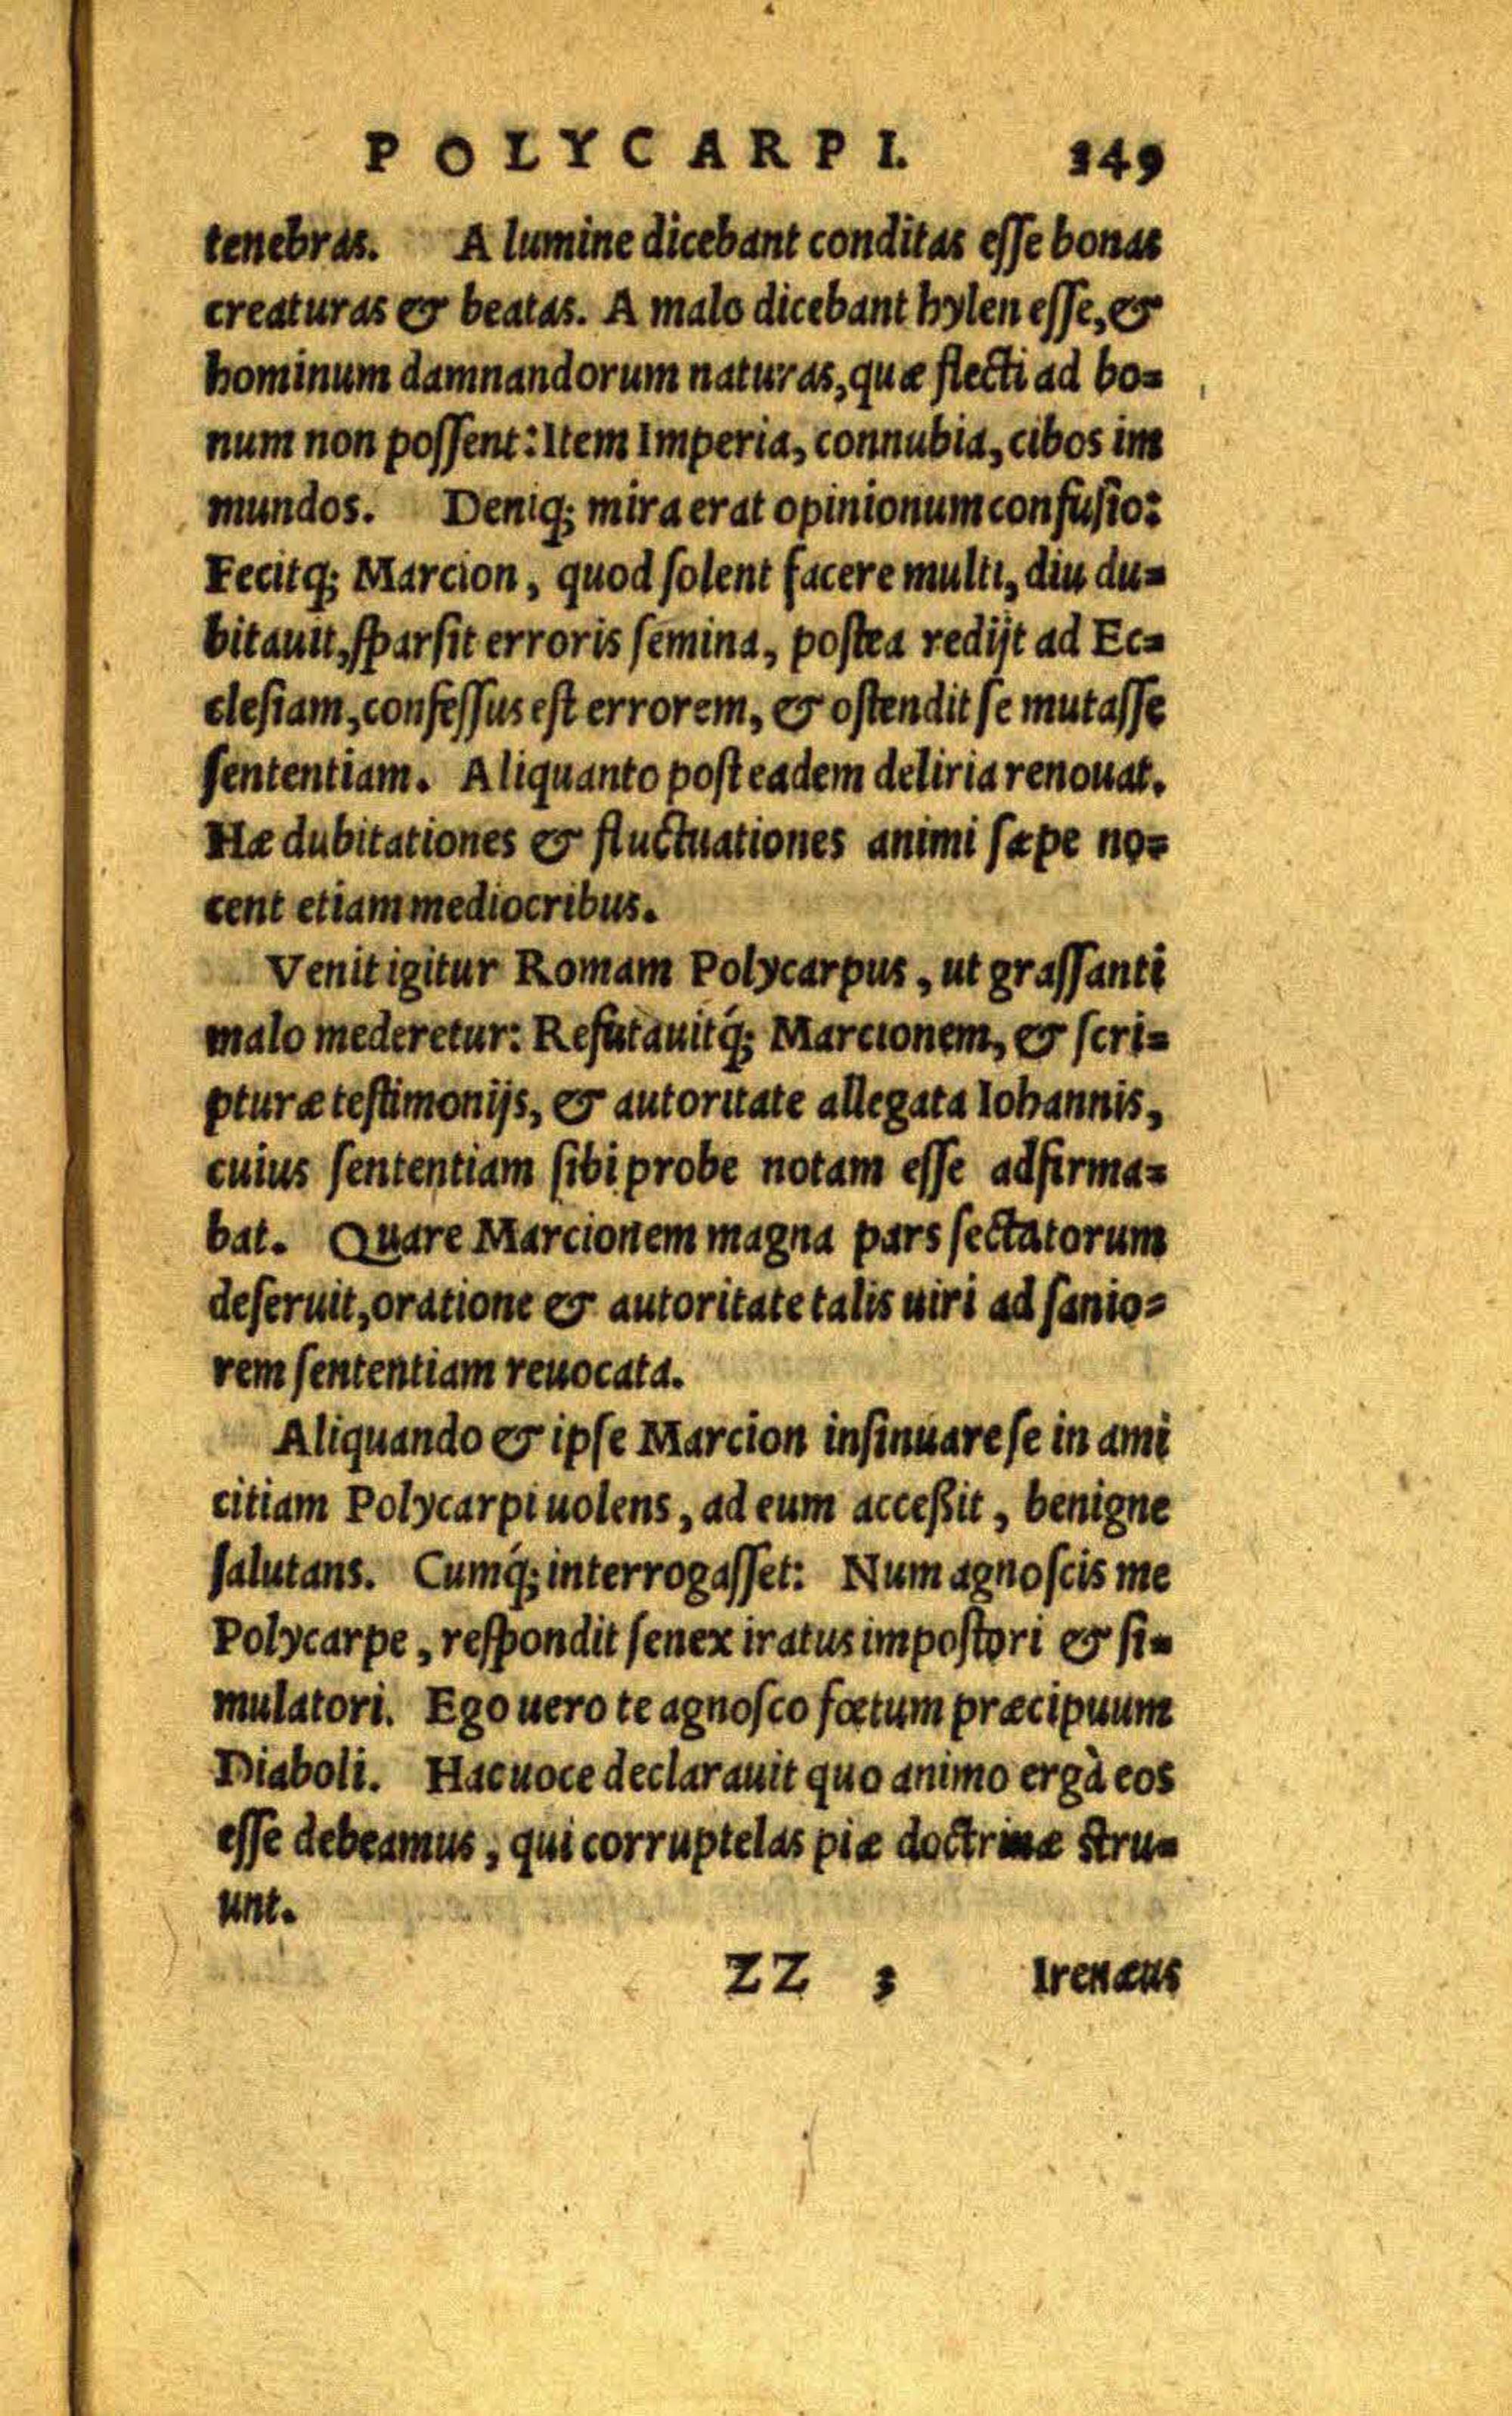 POLYCARPI. 349
tenebras. A lumine dicebant conditas eſſe bonas
creaturas & beatas. A malo dicebant hylen eſſe, &
hominum damnandorum naturas, quæ flecti ad bo=
num non poſſent: Item Imperia, connubia, cibos im
mundos. Deniq; mira erat opinionum confuſio:
Fecitq; Marcion, quod ſolent facere multi, diu du=
bitauit, ſparſit erroris ſemina, poſtea redijt ad Ec=
cleſiam, confeſſus eſt errorem, & oſtendit ſe mutaſſe
ſententiam. Aliquanto poſt eadem deliria renouat.
Hæ dubitationes & fluctuationes animi ſæpe no=
cent etiam mediocribus.
Venit igitur Romam Polycarpus, ut graſſanti
malo mederetur: Refutauitq́; Marcionem, & ſcri=
pturæ teſtimonijs, & autoritate allegata Iohannis,
cuius ſententiam ſibi probe notam eſſe adfirma=
bat. Quare Marcionem magna pars ſectatorum
deſeruit, oratione & autoritate talis uiri ad ſanio=
rem ſententiam reuocata.
Aliquando & ipſe Marcion inſinuare ſe in ami
citiam Polycarpi uolens, ad eum acceßit, benigne
ſalutans. Cumq́; interrogaſſet: Num agnoſcis me
Polycarpe, reſpondit ſenex iratus impoſtori & ſi=
mulatori. Ego uero te agnoſco fœtum præcipuum
Diaboli. Hac uoce declarauit quo animo ergà eos
eſſe debeamus, qui corruptelas piæ doctrinæ ſtru=
unt.
ZZ 3 Irenæus